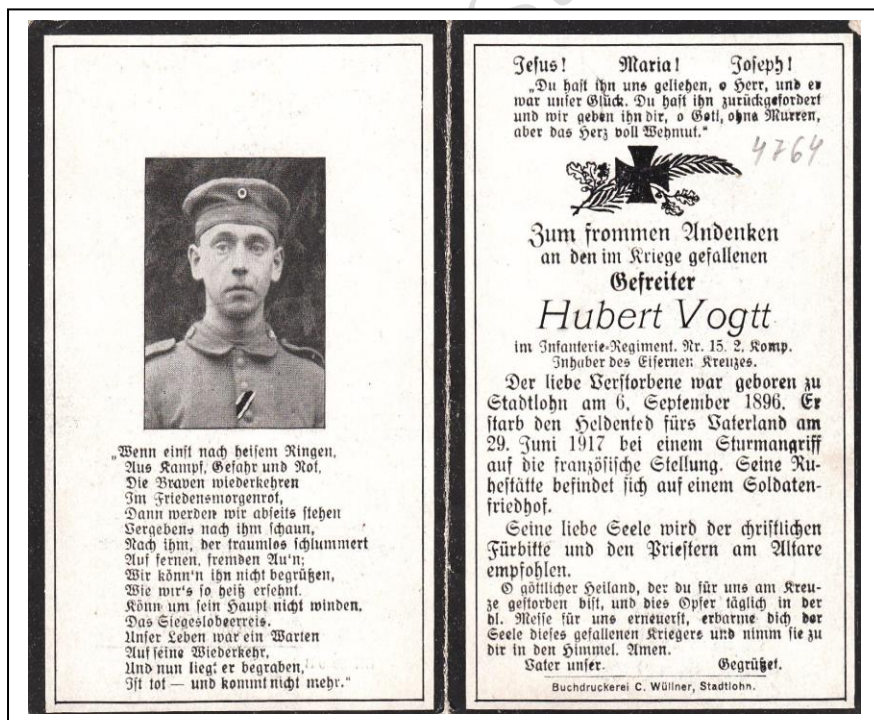 „Wenn einst nach heisem Ringen,
Aus Kampf, Gefahr und Not,
Die Braven wiederkehren
Im Friedensmorgenrot,
Dann werden wir abseits stehen
Vergebens nach ihm schaun,
Nach ihm, der traumlos schlummert
Auf fernen, fremden Au'n;
Wir könn'n ihn nicht begrüßen,
Wie wir's so heiß ersehnt.
Könn um sein Haupt nicht winden,
Das Siegeslobeerreis.
Unser Leben war ein Warten
Auf seine Wiederkehr,
Und nun liegt er begraben,
Ist tot — und kommt nicht mehr."
Jesus! Maria! Joseph!
„Du hast ihn uns geliehen, o Herr, und er
war unser Glück. Du hast ihn zurückgefordert
und wir geben ihn dir, o Gott, ohne Murren,
aber das Herz voll Wehmut."
4764
Zum frommen Andenken
an den im Kriege gefallenen
Gefreiter
Hubert Vogtt
im Infanterie-Regiment. Nr. 15. 2. Komp.
Inhaber des Eisernen Kreuzes.
Der liebe Verstorbene war geboren zu
Stadtlohn am 6. September 1896. Er
starb den Heldentod fürs Vaterland am
29. Juni 1917 bei einem Sturmangriff
auf die französische Stellung. Seine Ru-
hestätte befindet sich auf einem Soldaten-
friedhof.
Seine liebe Seele wird der christlichen
Fürbitte und den Priestern am Altare
empfohlen.
O göttlicher Heiland, der du für uns am Kreu-
ze gestorben bist, und dies Opfer täglich in der
hl. Messe für uns erneuerst, erbarme dich der
Seele dieses gefallenen Kriegers und nimm sie zu
dir in den Himmel. Amen.
Vater unser. Gegrüßet.
Buchdruckerei C. Wüllner, Stadtlohn.